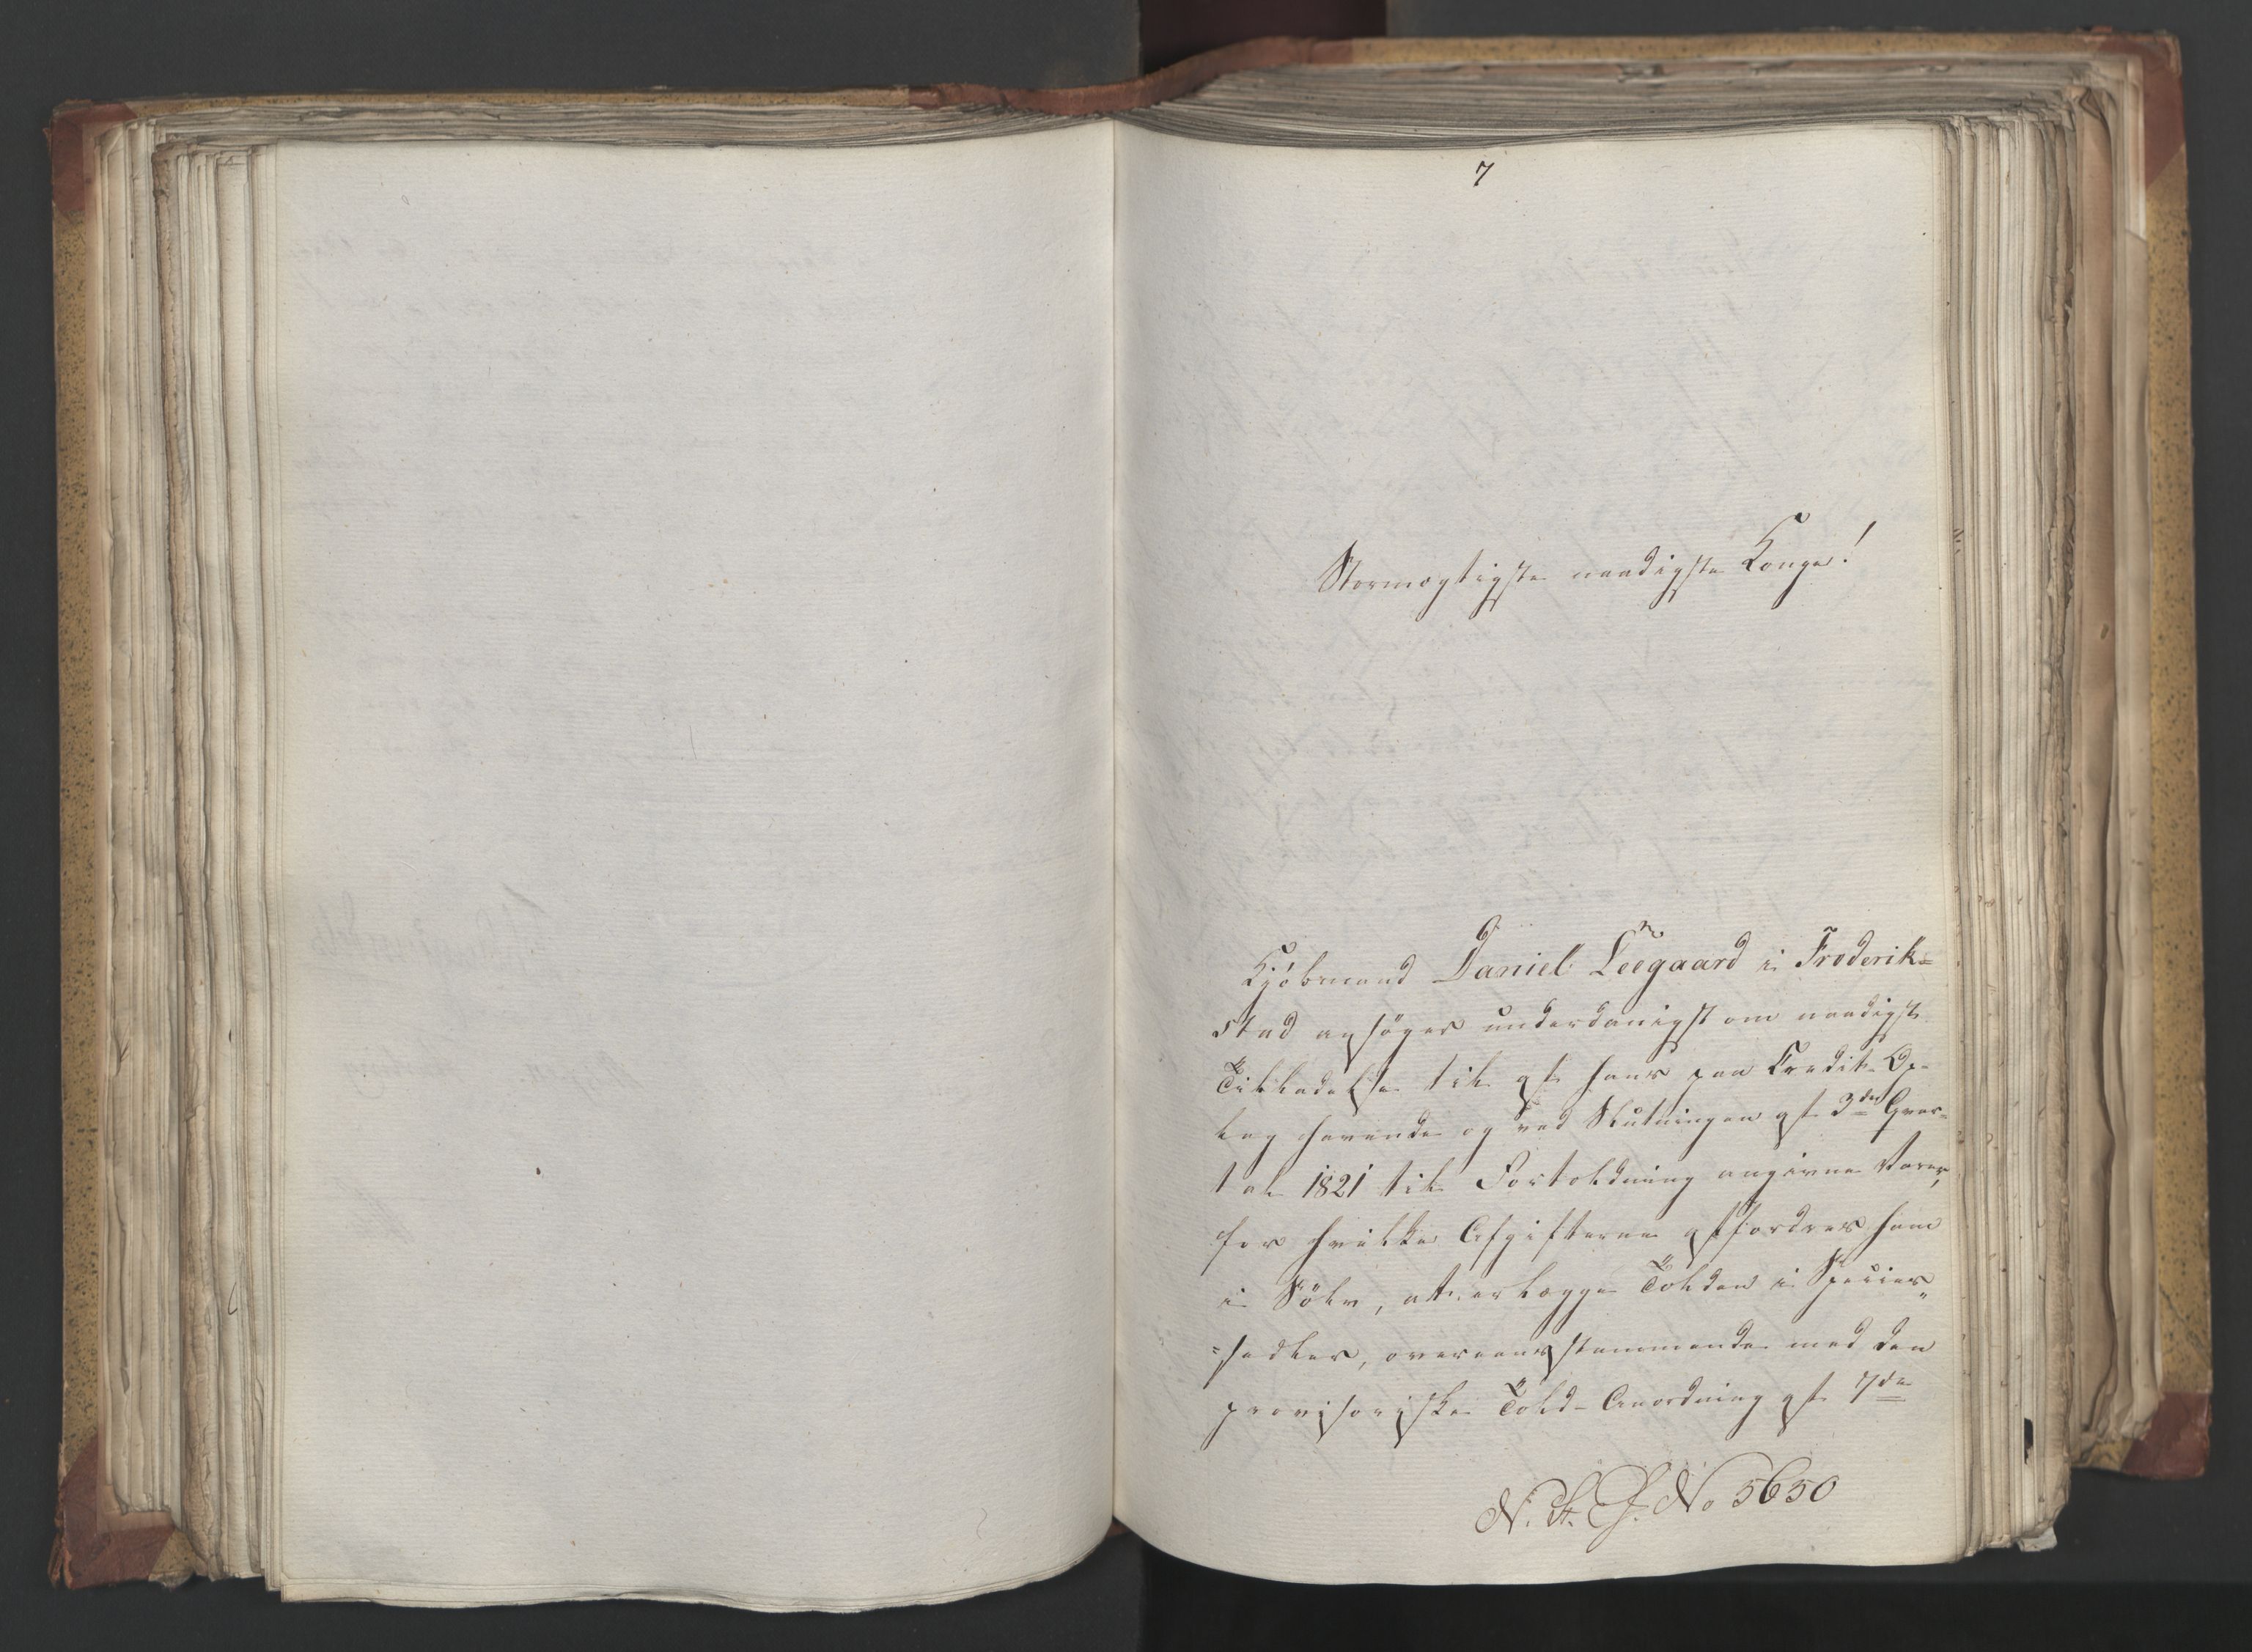 7
Stormægtigste naadigste Konge!
Kjøbmand Daniel Leegaard i Frederik=
stad ansøger underdanigst om naadigst
Tilladelse til af hans paa Credit-Op-
lag havende og ved Slutningen af 3die Qvar-
tal 1821 til Fortoldning angivne Varer,
for hvilke Afgifterne affordres ham
i Sølv, at erlægge Tolden i Species„
=sedler, overeensstemmende med den
provisoriske Told-Anordning af 7de
N. St. S. No 5650